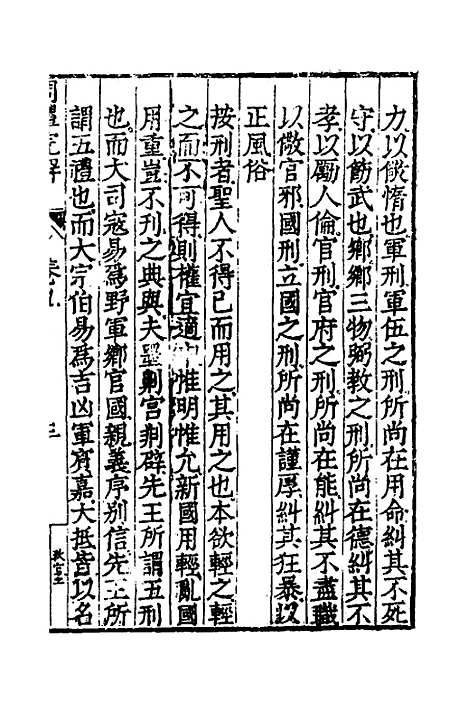 力以餤惰也軍刑軍伍之刑所尚在用命糾其不死
守以飭武也鄉鄉三物弼教之刑所尚在德糾其不
孝以勵人倫官刑官府之刑所尚在能糾其不盡職
以儆官邪國刑立國之刑所尚在謹厚糾其狂暴以
正風俗
按刑者聖人不得已而用之其用之也本欲輕之輕
之而不可得則權宜適惟明惟允新國用輕亂國
用重豈不刊之典與夫墨劓宮剕辟先王所謂五刑
也而大司寇易為野軍鄉官國親義序別信先王所
謂五禮也而大宗伯易為吉凶軍賓嘉大抵皆以名